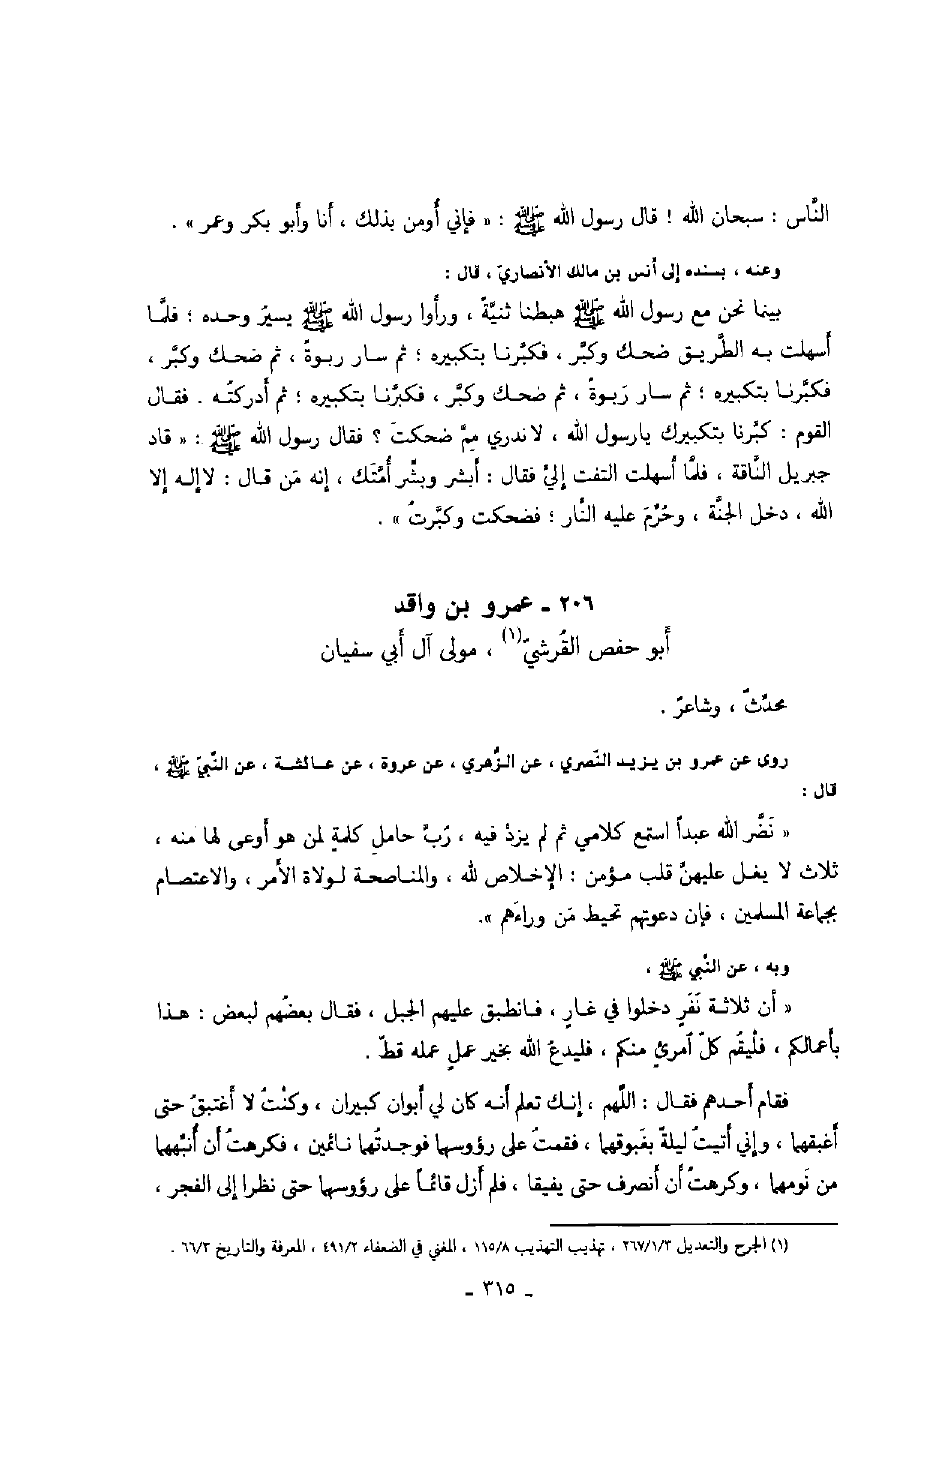 النَّاس : سبحان الله ! قال رسول الله ﷺ : « فإني أومن بذلك ، أنا وأبو بكر وعمر » .
وعنه ، بسنده إلى أنس بن مالك الأنصاريّ ، قال :
بينما نحن مع رسول الله ﷺ هبطنا ثنيَّةً ، ورأوا رسول الله ﷺ يسيرُ وحده ؛ فلمَّا
أسهلت به الطَّريق ضحك وكبَّر ، فكبَّرنا بتكبيره ؛ ثم سار ربوةً ، ثم ضحك وكبَّر ،
فكبَّرنا بتكبيره ؛ ثم سار رَبوةً ، ثم ضحك وكبَّر ، فكبَّرنا بتكبيره ؛ ثم أدركتُه . فقال
القوم : كبَّرنا بتكبيرك يارسول الله ، لاندري مِمَّ ضحكتَ ؟ فقال رسول الله ﷺ : « قاد
جبريل النَّاقة ، فلمَّا أسهلت التفت إليَّ فقال : أبشر وبشِّر أمَّتك ، إنه مَن قال : لاإله إلا
الله ، دخل الجنَّة ، وحُرِّمَ عليه النَّار ؛ فضحكت وكبَّرتُ » .
٢٠٦ ـ عمرو بن واقد
أبو حفص القُرشيّ(١) ، مولى آل أبي سفيان
محدّثٌ ، وشاعرٌ .
روى عن عمرو بن يزيد النَّصري ، عن الزُّهري ، عن عروة ، عن عائشة ، عن النَّبيّ ﷺ ،
قال :
« نَضَّر الله عبداً استمع كلامي ثم لم يزدْ فيه ، رُبَّ حاملِ كلمةٍ لمن هو أوعى لها منه ،
ثلاث لا يغل عليهنَّ قلب مؤمن : الإخلاص لله ، والمناصحة لولاة الأمر ، والاعتصام
بجماعة المسلمين ، فإن دعوتهم تحيط مَن وراءَهم ».
وبه ، عن النَّبي ﷺ ،
« أن ثلاثة نَفَرٍ دخلوا في غارٍ ، فانطبق عليهم الجبل ، فقال بعضُهم لبعض : هذا
بأعمالكم ، فلْيقُم كلّ آمرئٍ منكم ، فليدعُ الله بخير عملٍ عمله قطّ .
فقام أحدهم فقال : اللَّهم ، إنك تعلم أنه كان لي أبوان كبيران ، وكنْتُ لا أغتبقُ حتى
أغبقهما ، وإني أتيتُ ليلةً بغَبوقهما ، فقمتُ على رؤوسهما فوجدتُهما نائمين ، فكرهتُ أن أنبِّههما
من نَومهما ، وكرهتُ أن أنصرف حتى يفيقا ، فلم أزل قائماً على رؤوسهما حتى نظرا إلى الفجر ،
(١) الجرح والتعديل ٢٦٧/١/٣ ، تهذيب التهذيب ١١٥/٨ ، المغني في الضعفاء ٤٩١/٢ ، المعرفة والتاريخ ٦٦/٣ .
ـ ٣١٥ ـ